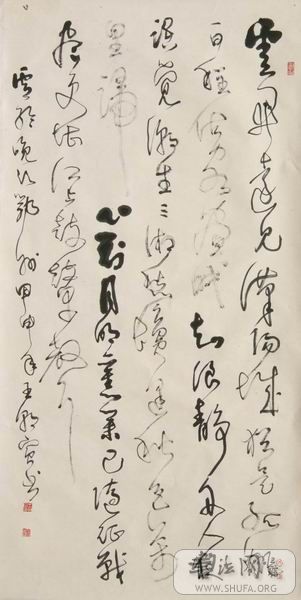 雲開遠見漢陽城猶是孤帆
一日程估客晝眠知浪靜舟人夜
語覺潮生三湘愁鬢逢秋色萬
里歸心對月明舊業已隨征戰
盡更堪江上鼓鼙聲
盧綸晚次鄂州甲申年王書
書法網
WWW.SHUFA.ORG